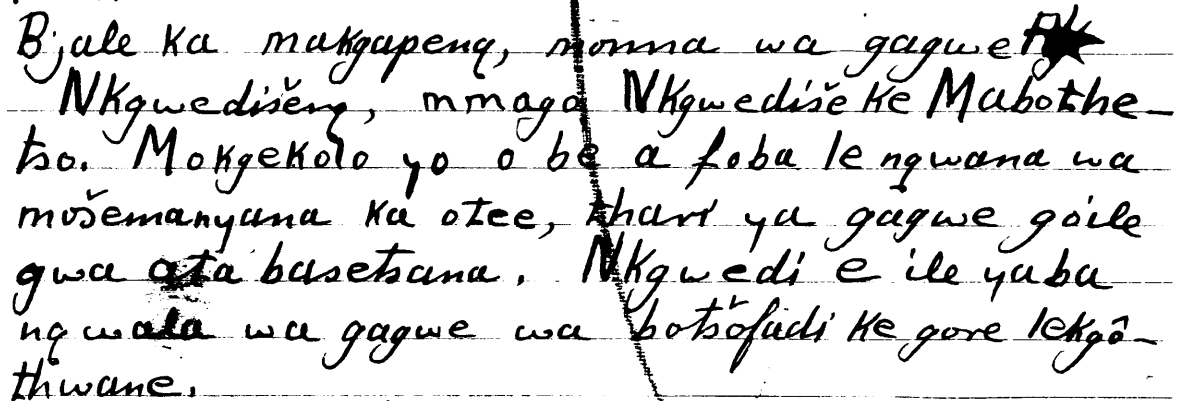 Bjale ka makgapeng, monna wa gagwe
Nkgwedišeng, mmago Nkgwediše ke Mabothe-
tso. Mokgekolo yo o be a foba le ngwana wa
mošemanyana ka otee, thari ya gagwe goile
gwa ata basetsana. Nkgwedi e ile yaba
ngwala wa gagwe wa botšofadi ke gore lekgô-
thwane.